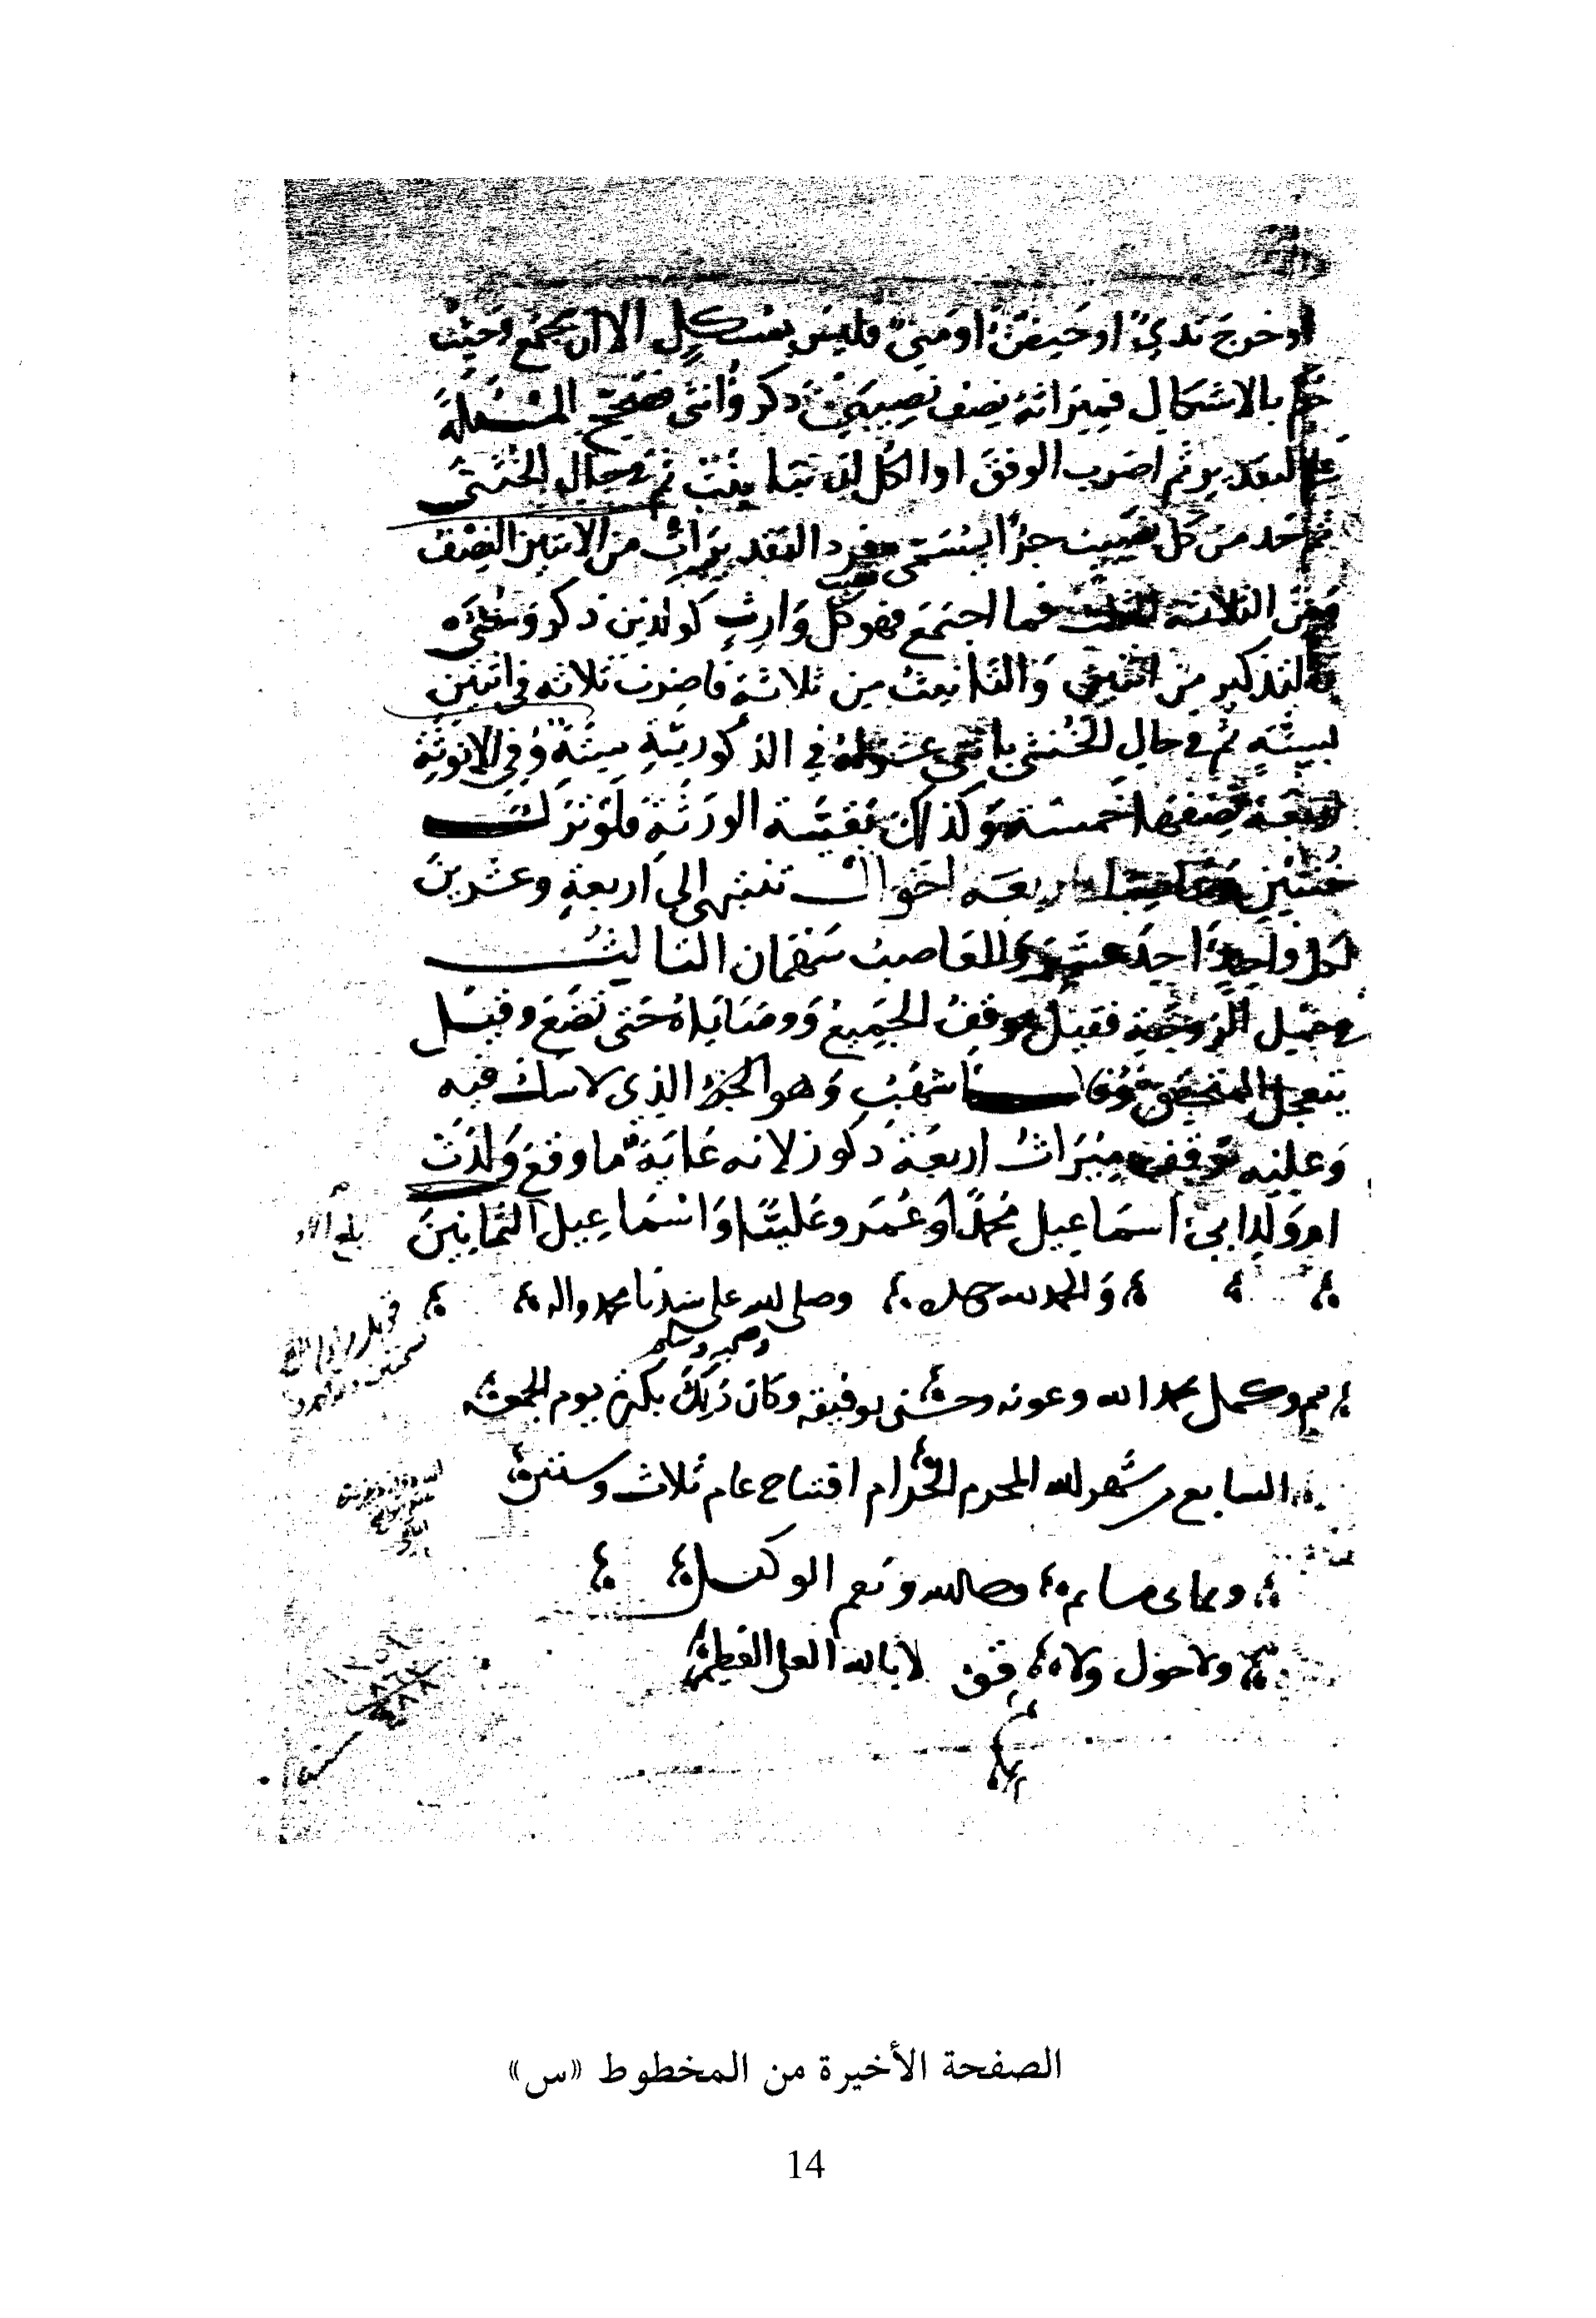 او خرج ثدي او حيض او مني فليس بمشكل الا ان يجتمع وحيث
حكم بالاشكال فميراثه نصف نصيبي ذكر وانثى فتصحح المسئلة
على التقديرين ثم اضرب الوفق او الكل ان تباينت ثم في حال الخنثى
ثم تاخذ من كل نصيب جزا يسمى مفرد التقديرات من الاثنين النصف
ومن الثلاثة الثلث فما اجتمع فهو كل وارث كولدين ذكر وخنثى
فالتذكير من اثنين والتانيث من ثلاثة فاضرب ثلاثه في اثنين
بستة ثم في حال الخنثى باثني عشر له في الذكورية ستة وفي الانوثة
اربعة نصفها خمسة وكذلك بقية الورثة فلو ترك
خنثين وعاصبا اربعه احوال تنتهي الى اربعة وعشرين
لكل واحد احد عشر وللعاصب سهمان الثالث
حمل الزوجة فقيل يوقف الجميع ووصاياه حتى تضع وقيل
يتعجل المتحقق وقال اشهب وهو الجزء الذي لا شك فيه
وعليه توقف ميراث اربعة ذكور لانه غاية ما وقع ولدت
ام ولد ابي اسماعيل محمدا وعمر وعليا واسماعيل الثمانين
والحمد لله وصلى الله على سيدنا محمد واله
وصحبه وسلم
تم وكمل بحمد الله وعونه وحسن توفيقه وكان ذلك بكرة يوم الجمعة
السابع من شهر الله المحرم الحرام افتتاح عام ثلاث وستين
وثماني مايه ونعم الوكيل
ولا حول ولا قوة الا بالله العلي العظيم
الصفحة الأخيرة من المخطوط «س»
14